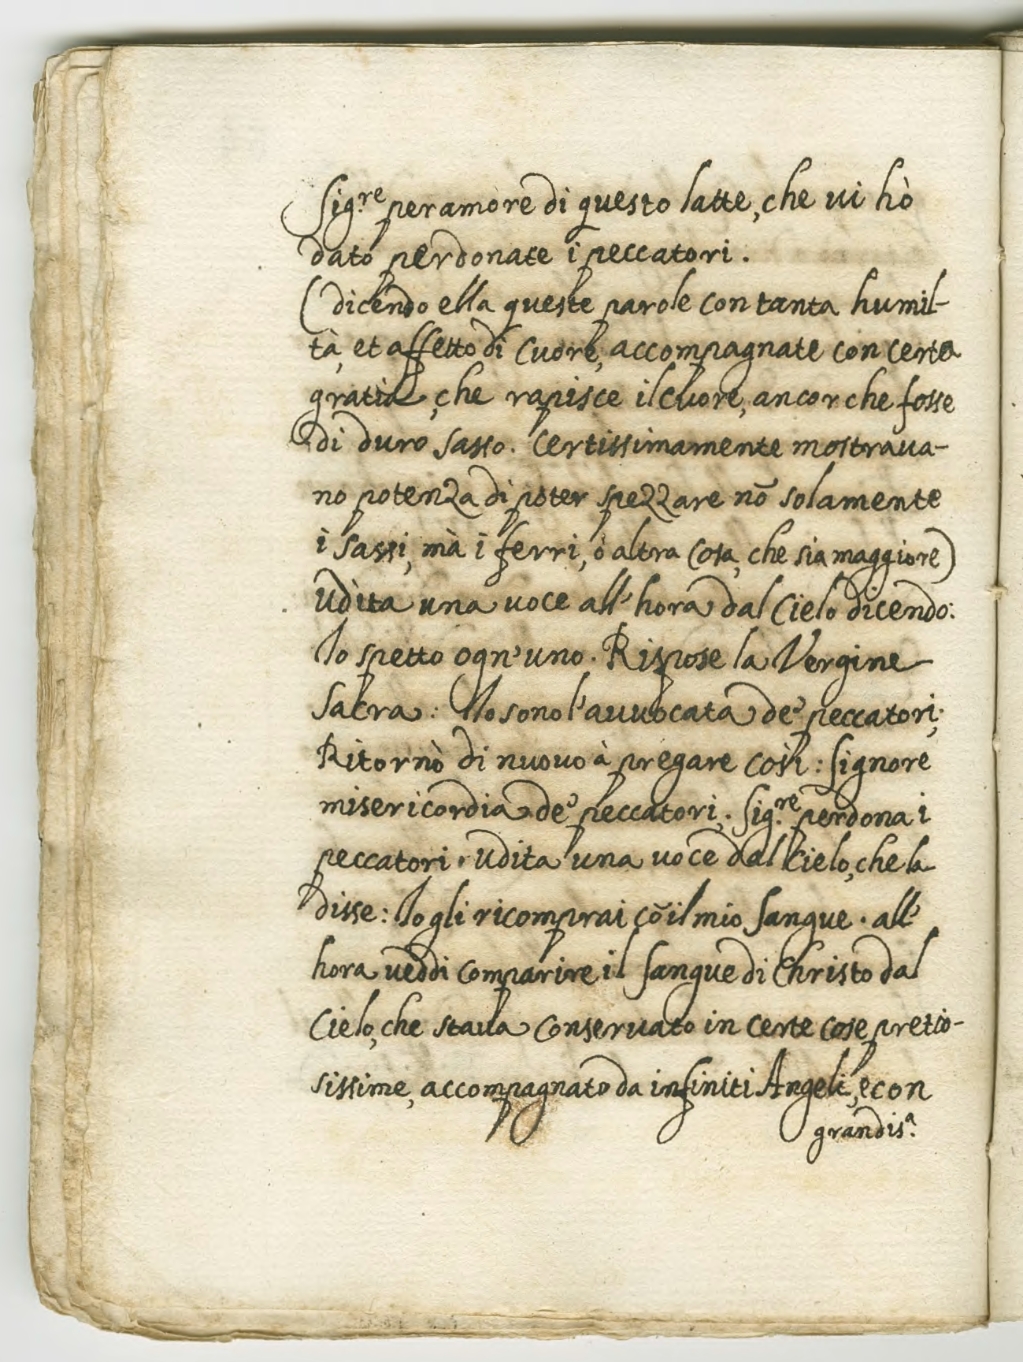 Sig.re per amore di questo latte, che vi hò
dato perdonate i peccatori.
(dicendo ella queste parole con tanta humil-
tà, et affetto di Cuore, accompagnate con certa
gratia, che rapisce il Cuore, ancor che fosse
di duro sasso. Certissimamente mostraua-
no potenza di poter spezzare nõ solamente
i sassi, mà i ferri, ò altra cosa, che sia maggiore)
Udita una uoce all'hora dal Cielo dicendo:
Io spetto ogn'uno. Rispose la Vergine
Sacra: Io sono l'auuocata de' peccatori;
Ritornò di nuouo à pregare così: Signore
misericordia de' peccatori. Sig.re perdona i
peccatori. udita una uoce dal Cielo, che la
disse: Io gli ricomprai cõ il mio Sangue. all'
hora ueddi comparire il Sangue di Christo dal
Cielo, che staua Conseruato in certe cose pretio-
sissime, accompagnato da infiniti Angeli, e con
grandis.a